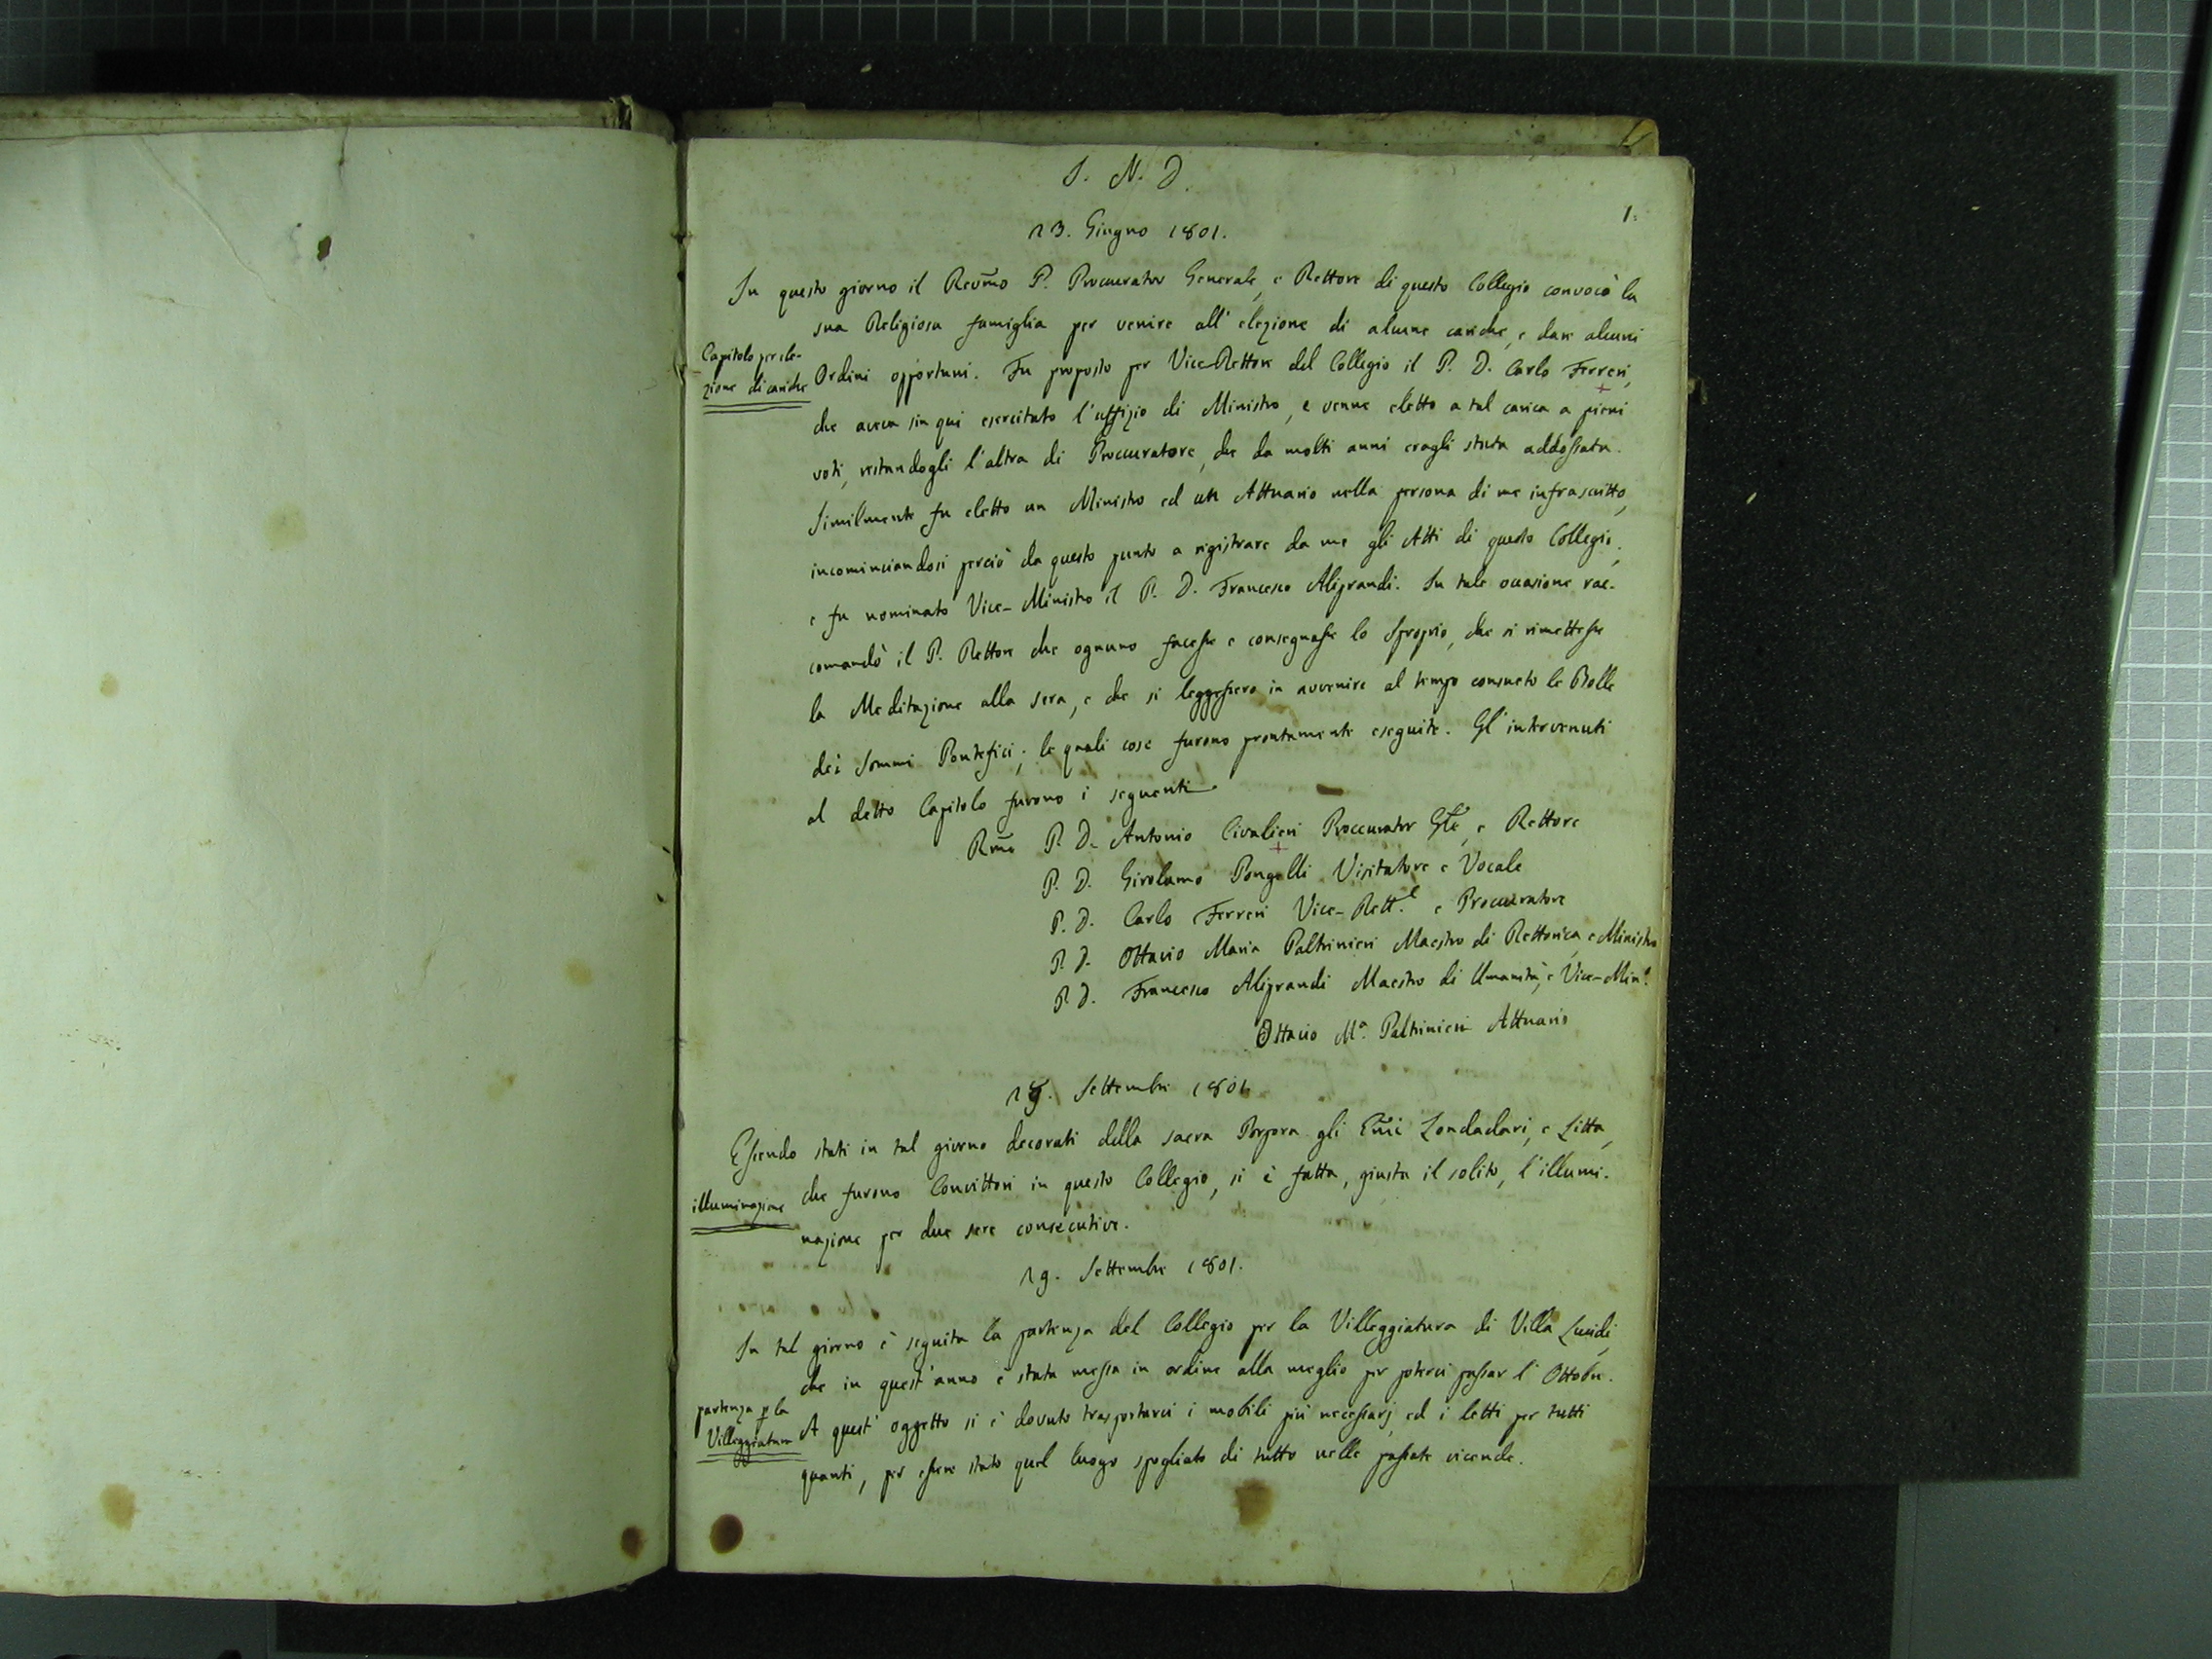 I. N. D.
1.
13. Giugno 1801.
In questo giorno il Reverm̃o P. Procurator Generale, e Rettore di questo Collegio convocò la
sua Religiosa famiglia per venire all'elezione di alcune cariche, e dare alcuni
Capitolo per ele-
zione di cariche
Ordini opportuni. Fu proposto per Vice-Rettore del Collegio il P. D. Carlo Ferreri,
che aveva sin qui esercitato l'uffizio di Ministro, e venne eletto a tal carica a pieni
voti, restandogli l'altra di Proccuratore, che da molti anni eragli stata addossata.
Similmente fu eletto un Ministro ed un Attuario nella persona di me infrascritto,
incominciandosi perciò da questo punto a registrare da me gli Atti di questo Collegio,
e fu nominato Vice-Ministro il P. D. Francesco Aliprandi. In tale occasione rac-
comandò il P. Rettore che ognuno facesse e consegnasse lo Sproprio, che si rimettesse
la Meditazione alla sera, e che si leggessero in avvenire al tempo consueto le Bolle
dei Sommi Pontefici; le quali cose furono prontamente eseguite. Gl'intervenuti
al detto Capitolo furono i seguenti
Rm̃o P. D. Antonio Civalieri Proccurator Gle, e Rettore
P. D. Girolamo Pongelli Visitatore e Vocale
P. D. Carlo Ferreri Vice-Rett.e e Procuratore
P. D. Ottavio Maria Paltrinieri Maestro di Rettorica, e Ministro
P. D. Francesco Aliprandi Maestro di Umanità, e Vice-Min.o
Ottavio M.a Paltrinieri Attuario
18. Settembre 1801
Essendo stati in tal giorno decorati della sacra Porpora gli Em̃i Zondadari, e Litta,
illuminazione
che furono Convittori in questo Collegio, si è fatta, giusta il solito, l'illumi-
nazione per due sere consecutive.
19. Settembre 1801.
In tal giorno è seguita la partenza del Collegio per la Villeggiatura di Villa Lucidi,
che in quest'anno è stata messa in ordine alla meglio per poterci passar l'Ottobre.
partenza p la
Villeggiatura
A quest'oggetto si è dovuto trasportarci i mobili più necessarj, ed i letti per tutti
quanti, per essere stato quel luogo spogliato di tutto nelle passate vicende.